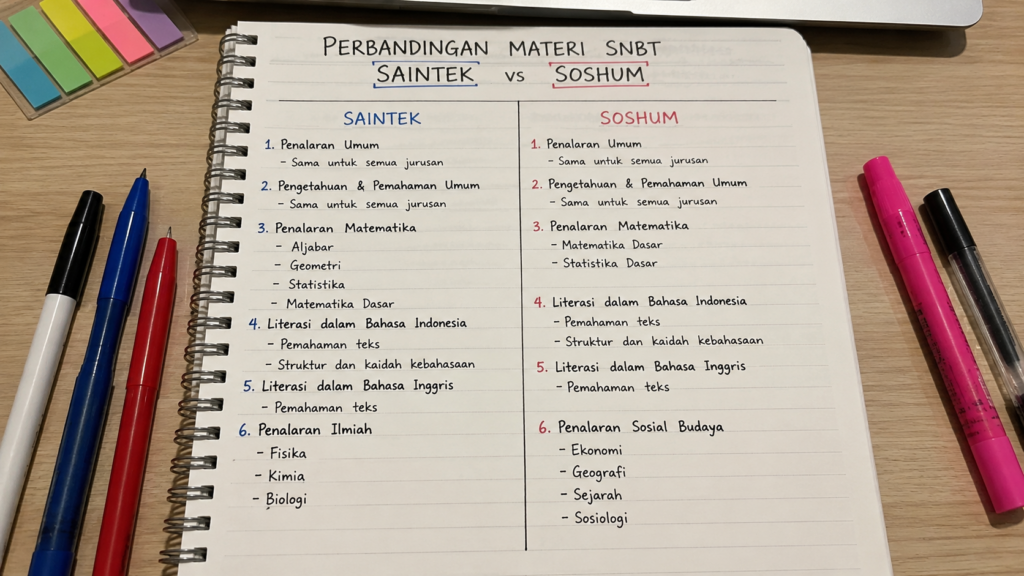 PERBANDINGAN MATERI SNBT
SAINTEK vs SOSHUM
SAINTEK
1. Penalaran Umum
- Sama untuk semua jurusan
2. Pengetahuan & Pemahaman Umum
- Sama untuk semua jurusan
3. Penalaran Matematika
- Aljabar
- Geometri
- Statistika
- Matematika Dasar
4. Literasi dalam Bahasa Indonesia
- Pemahaman teks
- Struktur dan kaidah kebahasaan
5. Literasi dalam Bahasa Inggris
- Pemahaman teks
6. Penalaran Ilmiah
- Fisika
- Kimia
- Biologi
SOSHUM
1. Penalaran Umum
- Sama untuk semua jurusan
2. Pengetahuan & Pemahaman Umum
- Sama untuk semua jurusan
3. Penalaran Matematika
- Matematika Dasar
- Statistika Dasar
4. Literasi dalam Bahasa Indonesia
- Pemahaman teks
- Struktur dan kaidah kebahasaan
5. Literasi dalam Bahasa Inggris
- Pemahaman teks
6. Penalaran Sosial Budaya
- Ekonomi
- Geografi
- Sejarah
- Sosiologi